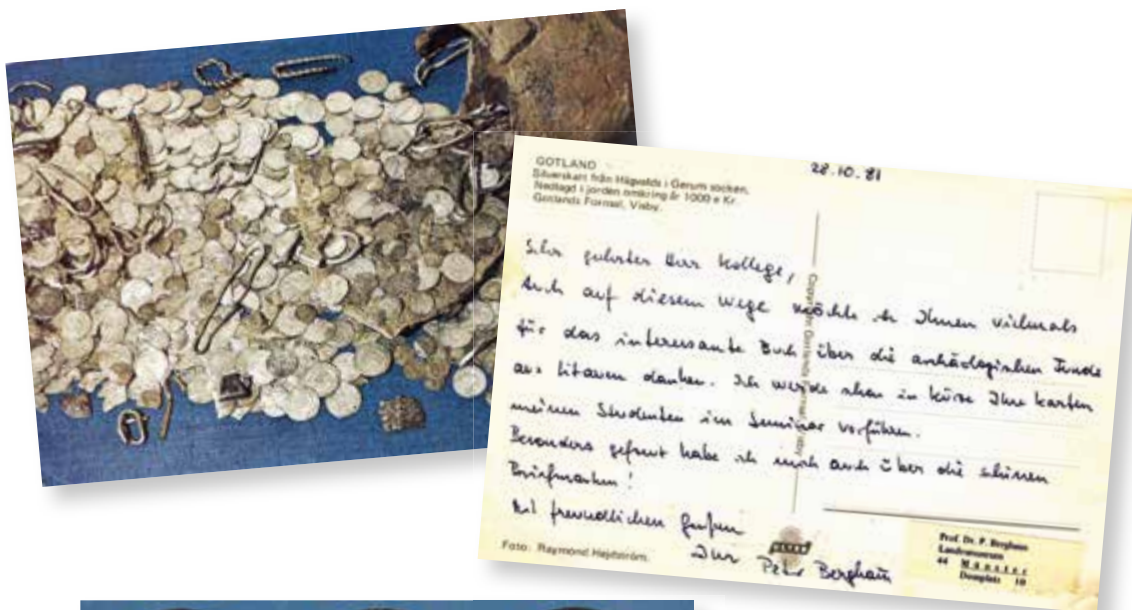 GOTLAND
Silverskatt från Hägvalds i Gerum socken.
Nedlagd i jorden omkring år 1000 e Kr.
Gotlands Fornsal, Visby.
28.10.81
Sehr geehrter Herr Kollege,
Auch auf diesem Wege möchte ich Ihnen vielmals
für das interessante Buch über die archäologischen Funde
aus Litauen danken. Ich werde schon in Kürze Ihre Karten
meinen Studenten im Seminar vorführen.
Besonders gefreut habe ich mich auch über die schönen
Briefmarken!
Mit freundlichen Grüßen
Ihr Peter Berghaus
Copyright Gotlands Fornsal Visby
Foto: Raymond Hejdström.
Prof. Dr. P. Berghaus
Landesmuseum
44 Münster
Domplatz 10